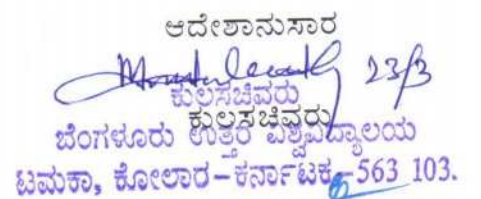 ಆದೇಶಾನುಸಾರ
23/3
ಕುಲಸಚಿವರು
ಕುಲಸಚಿವರು
ಬೆಂಗಳೂರು ಉತ್ತರ ವಿಶ್ವವಿದ್ಯಾಲಯ
ಟಮಕಾ, ಕೋಲಾರ-ಕರ್ನಾಟಕ-563 103.